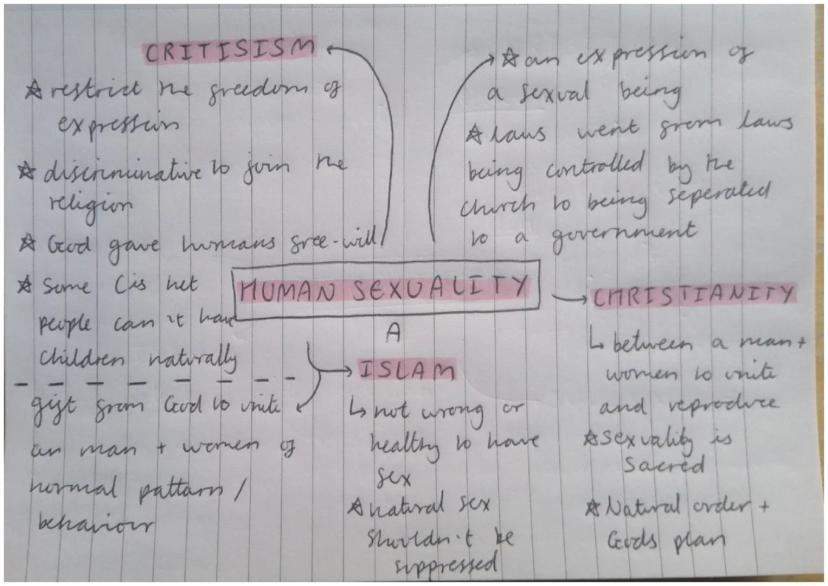 CRITISISM
☆ restrict the freedom of
expression
☆ discriminative to join the
religion
☆ God gave humans free-will
☆ Some Cis het
people can't have
children naturally
gift from God to unite
an man + women of
normal pattarn /
behaviour
☆ an expression of
a sexual being
☆ laws went from laws
being controlled by the
church to being seperated
to a government
HUMAN SEXUALITY
A
ISLAM
↳ not wrong or
healthy to have
sex
☆ natural sex
shouldn't be
suppressed
CHRISTIANITY
↳ between a man +
women to unite
and reproduce
☆ sexuality is
Sacred
☆ Natural order +
Gods plan